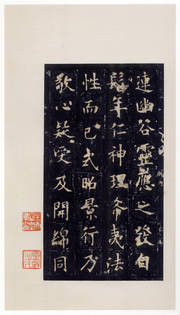 連幽谷靈應之發自
髫年仁神理希夷法
性而已式昭景行乃
敬心疑受及開同